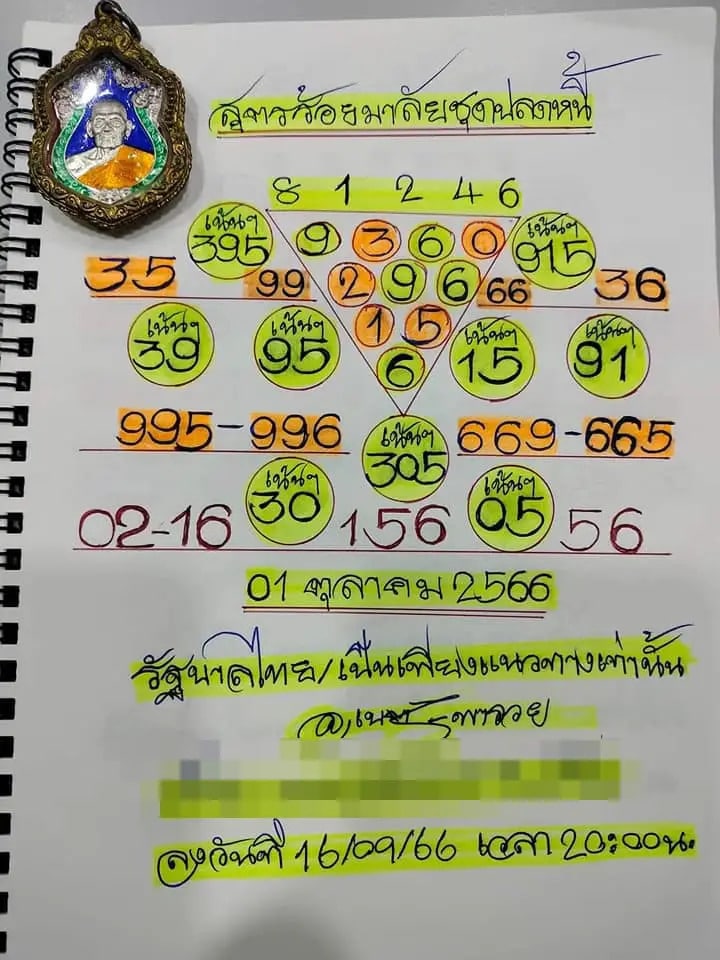 สูตรร้อยมาลัยชุดปลดหนี้
8 1 2 4 6
เน้นๆ 395 9 3 6 0 เน้นๆ 915
35 99 2 9 6 66 36
1 5
เน้นๆ 39 เน้นๆ 95 6 เน้นๆ 15 เน้นๆ 91
995-996 เน้นๆ 305 669-665
02-16 เน้นๆ 30 156 เน้นๆ 05 56
01 ตุลาคม 2566
รัฐบาลไทย/เป็นเพียงแนวทางเท่านั้น
พารวย
ลงวันที่ 16/09/66 เวลา 20:00น.